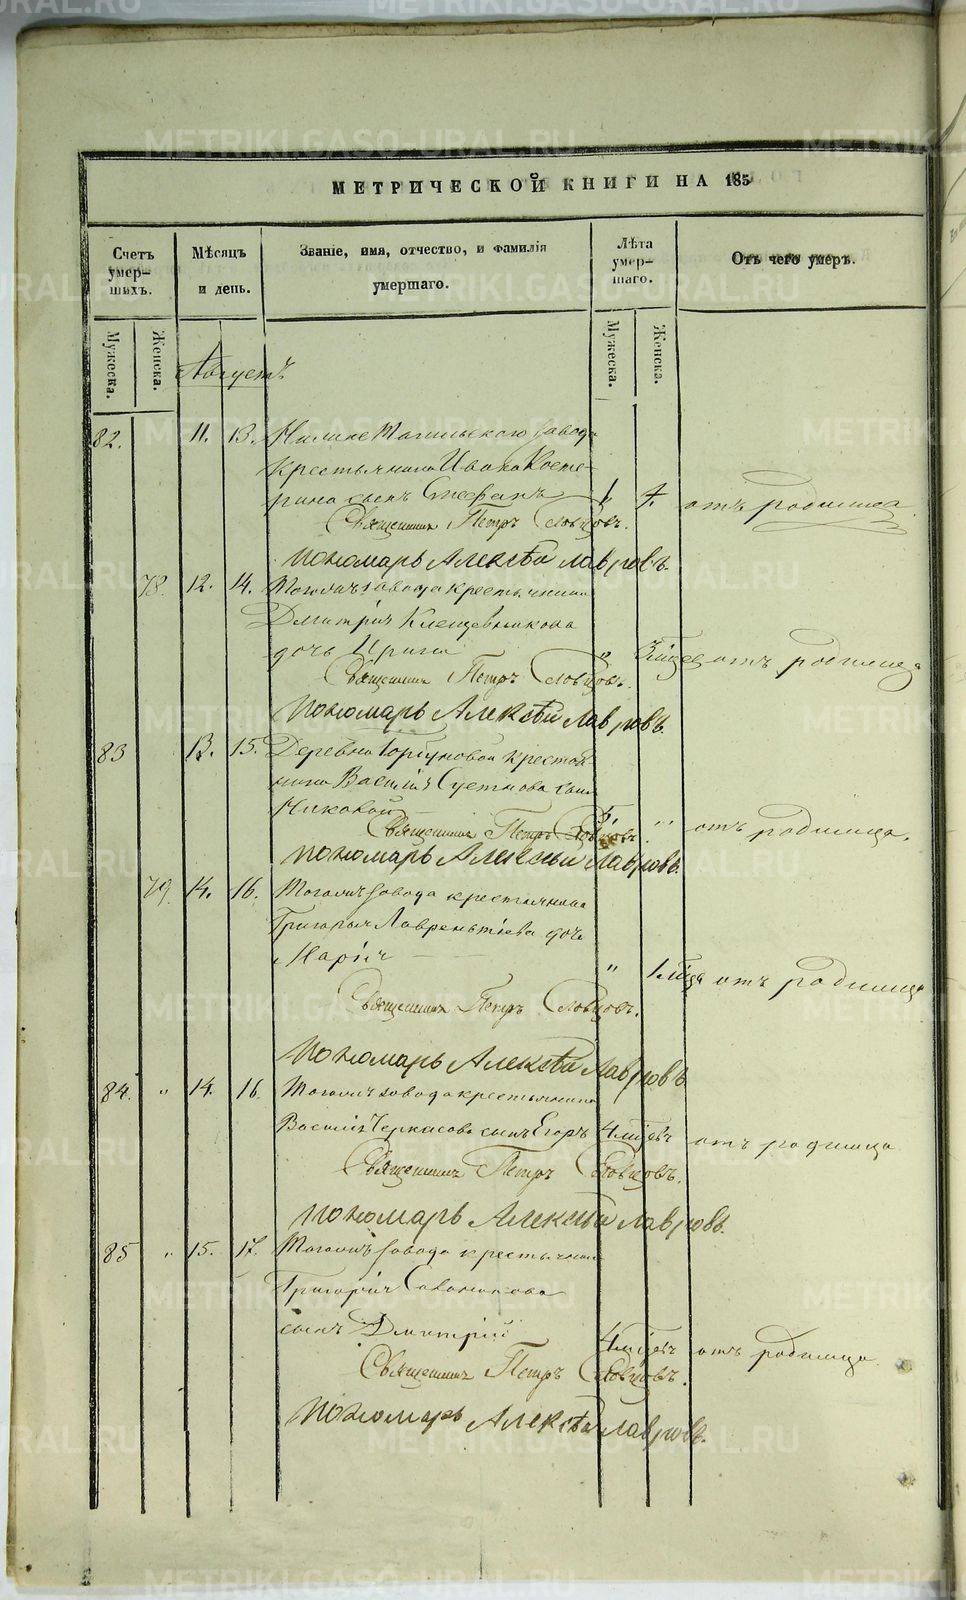 METRIKI.GASO-URAL.RU
МЕТРИЧЕСКОЙ КНИГИ НА 185
Счетъ умер-шихъ.
Мѣсяцъ и день.
Званіе, имя, отчество, и фамилія умершаго.
Лѣта умер-шаго.
Отъ чего умеръ.
Мужеска.
Женска.
Мужеска.
Женска.
Августъ
82. 11. 13. завода
крестьянина Ивана Косте-
рина сынъ Стефанъ 1/4. отъ родимца.
Священникъ Петръ Словцовъ.
Пономарь Алексѣй Лавровъ.
78. 12. 14. завода крестьянина
Дмитрія Клещевникова
дочь Ирина " отъ родимца
Священникъ Петръ Словцовъ.
Пономарь Алексѣй Лавровъ.
83 13. 15. Деревни Горбуновой крестья-
нина Василія сынъ
Николай отъ родимца.
Священникъ Петръ Словцовъ.
Пономарь Алексѣй Лавровъ.
79. 14. 16. завода крестьянина
Григорья Лаврентіева дочь
Марія " 1 мѣсяца отъ родимца
Священникъ Петръ Словцовъ.
Пономарь Алексѣй Лавровъ.
84. " 14. 16. завода крестьянина
Василія Черкасова сынъ Егоръ отъ родимца
Священникъ Петръ Словцовъ.
Пономарь Алексѣй Лавровъ.
85 " 15. 17. завода крестьянина
Григорія
сынъ Дмитрій отъ родимца.
Священникъ Петръ Словцовъ.
Пономарь Алексѣй Лавровъ.